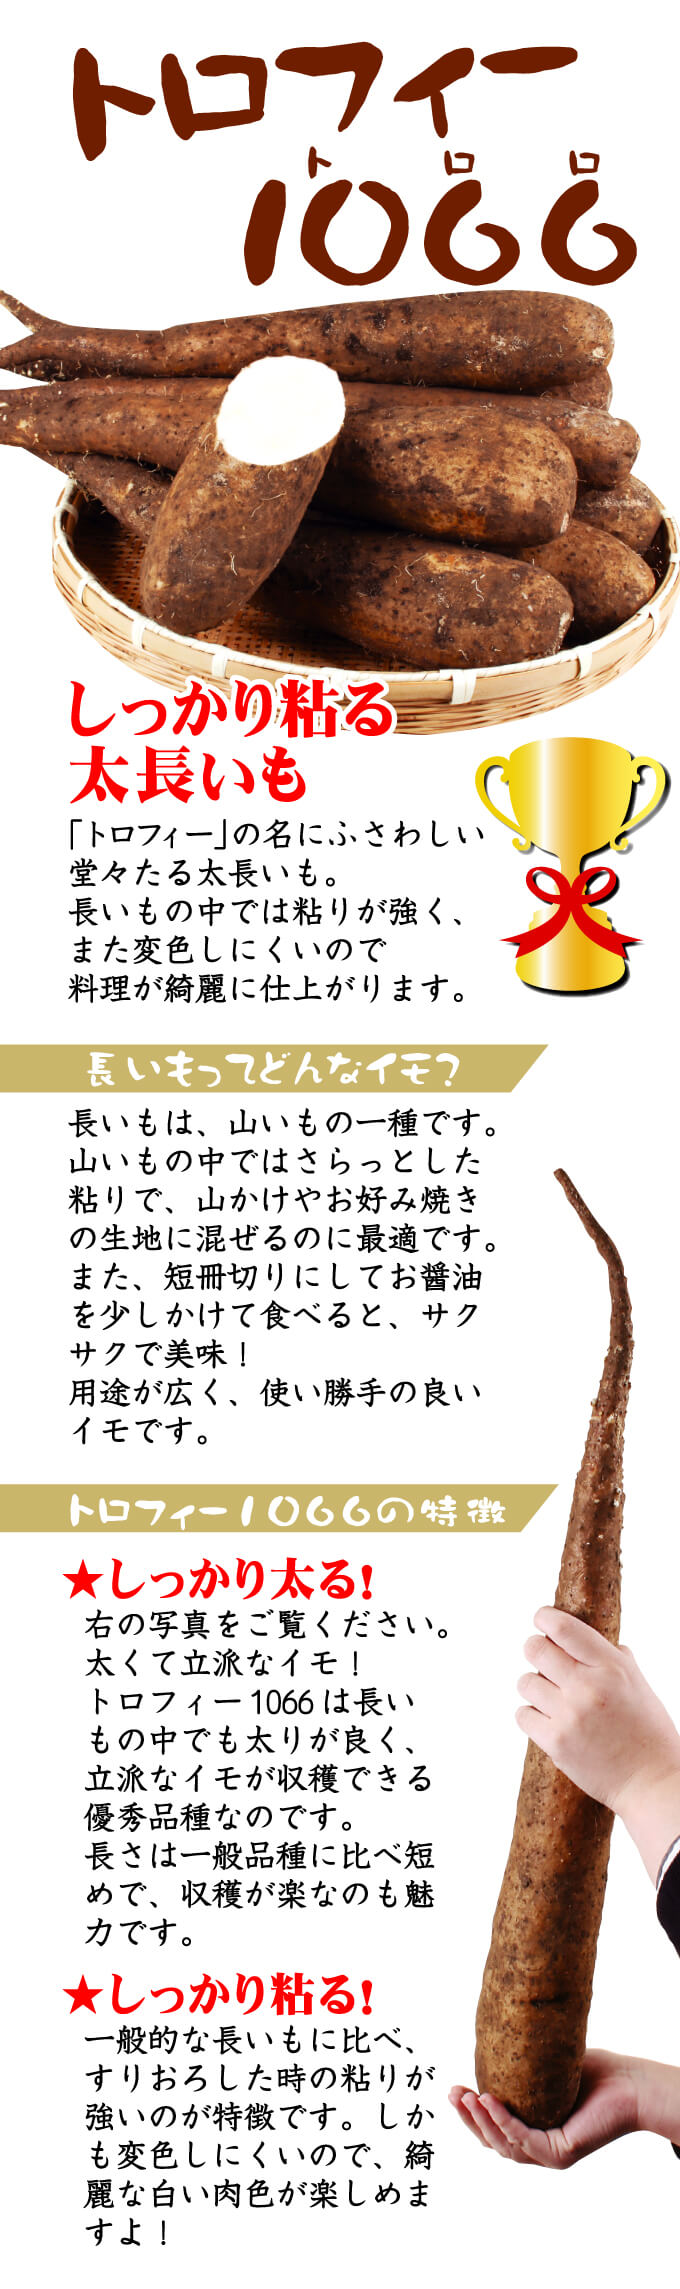 トロフィー
トロロ
1066
しっかり粘る
太長いも
「トロフィー」の名にふさわしい
堂々たる太長いも。
長いもの中では粘りが強く、
また変色しにくいので
料理が綺麗に仕上がります。
長いもってどんなイモ?
長いもは、山いもの一種です。
山いもの中ではさらっとした
粘りで、山かけやお好み焼き
の生地に混ぜるのに最適です。
また、短冊切りにしてお醤油
を少しかけて食べると、サク
サクで美味!
用途が広く、使い勝手の良い
イモです。
トロフィー1066の特徴
★しっかり太る!
右の写真をご覧ください。
太くて立派なイモ!
トロフィー1066は長い
もの中でも太りが良く、
立派なイモが収穫できる
優秀品種なのです。
長さは一般品種に比べ短
めで、収穫が楽なのも魅
力です。
★しっかり粘る!
一般的な長いもに比べ、
すりおろした時の粘りが
強いのが特徴です。しか
も変色しにくいので、綺
麗な白い肉色が楽しめま
すよ!